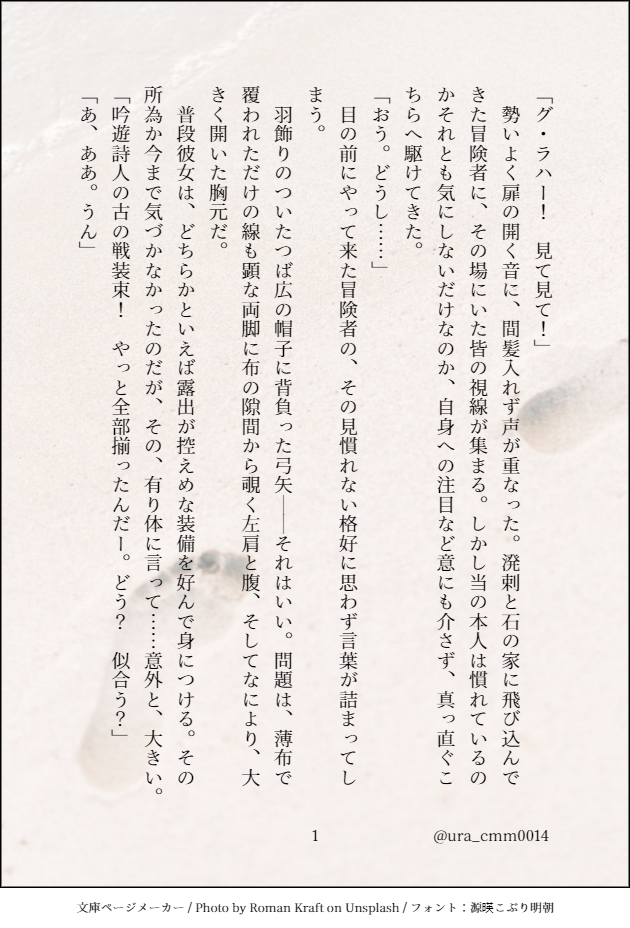 「グ・ラハー！　見て見て！」
　勢いよく扉の開く音に、間髪入れず声が重なった。溌剌と石の家に飛び込んで
きた冒険者に、その場にいた皆の視線が集まる。しかし当の本人は慣れているの
かそれとも気にしないだけなのか、自身への注目など意にも介さず、真っ直ぐこ
ちらへ駆けてきた。
「おう。どうし……」
　目の前にやって来た冒険者の、その見慣れない格好に思わず言葉が詰まってし
まう。
　羽飾りのついたつば広の帽子に背負った弓矢――それはいい。問題は、薄布で
覆われただけの線も顕な両脚に布の隙間から覗く左肩と腹、そしてなにより、大
きく開いた胸元だ。
　普段彼女は、どちらかといえば露出が控えめな装備を好んで身につける。その
所為か今まで気づかなかったのだが、その、有り体に言って……意外と、大きい。
「吟遊詩人の古の戦装束！　やっと全部揃ったんだー。どう？　似合う？」
「あ、ああ。うん」
1
@ura_cmm0014
文庫ページメーカー / Photo by Roman Kraft on Unsplash / フォント：源暎こぶり明朝